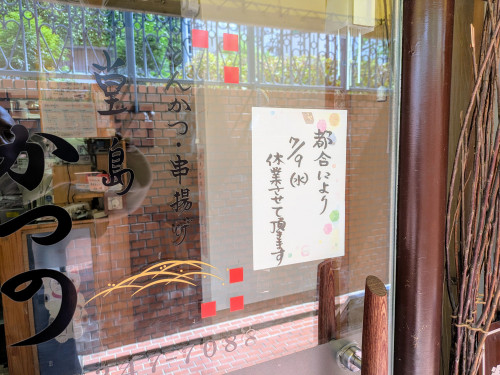 堂島
かつの
とんかつ・串揚げ
都合により
7/9(水)
休業させて頂きます